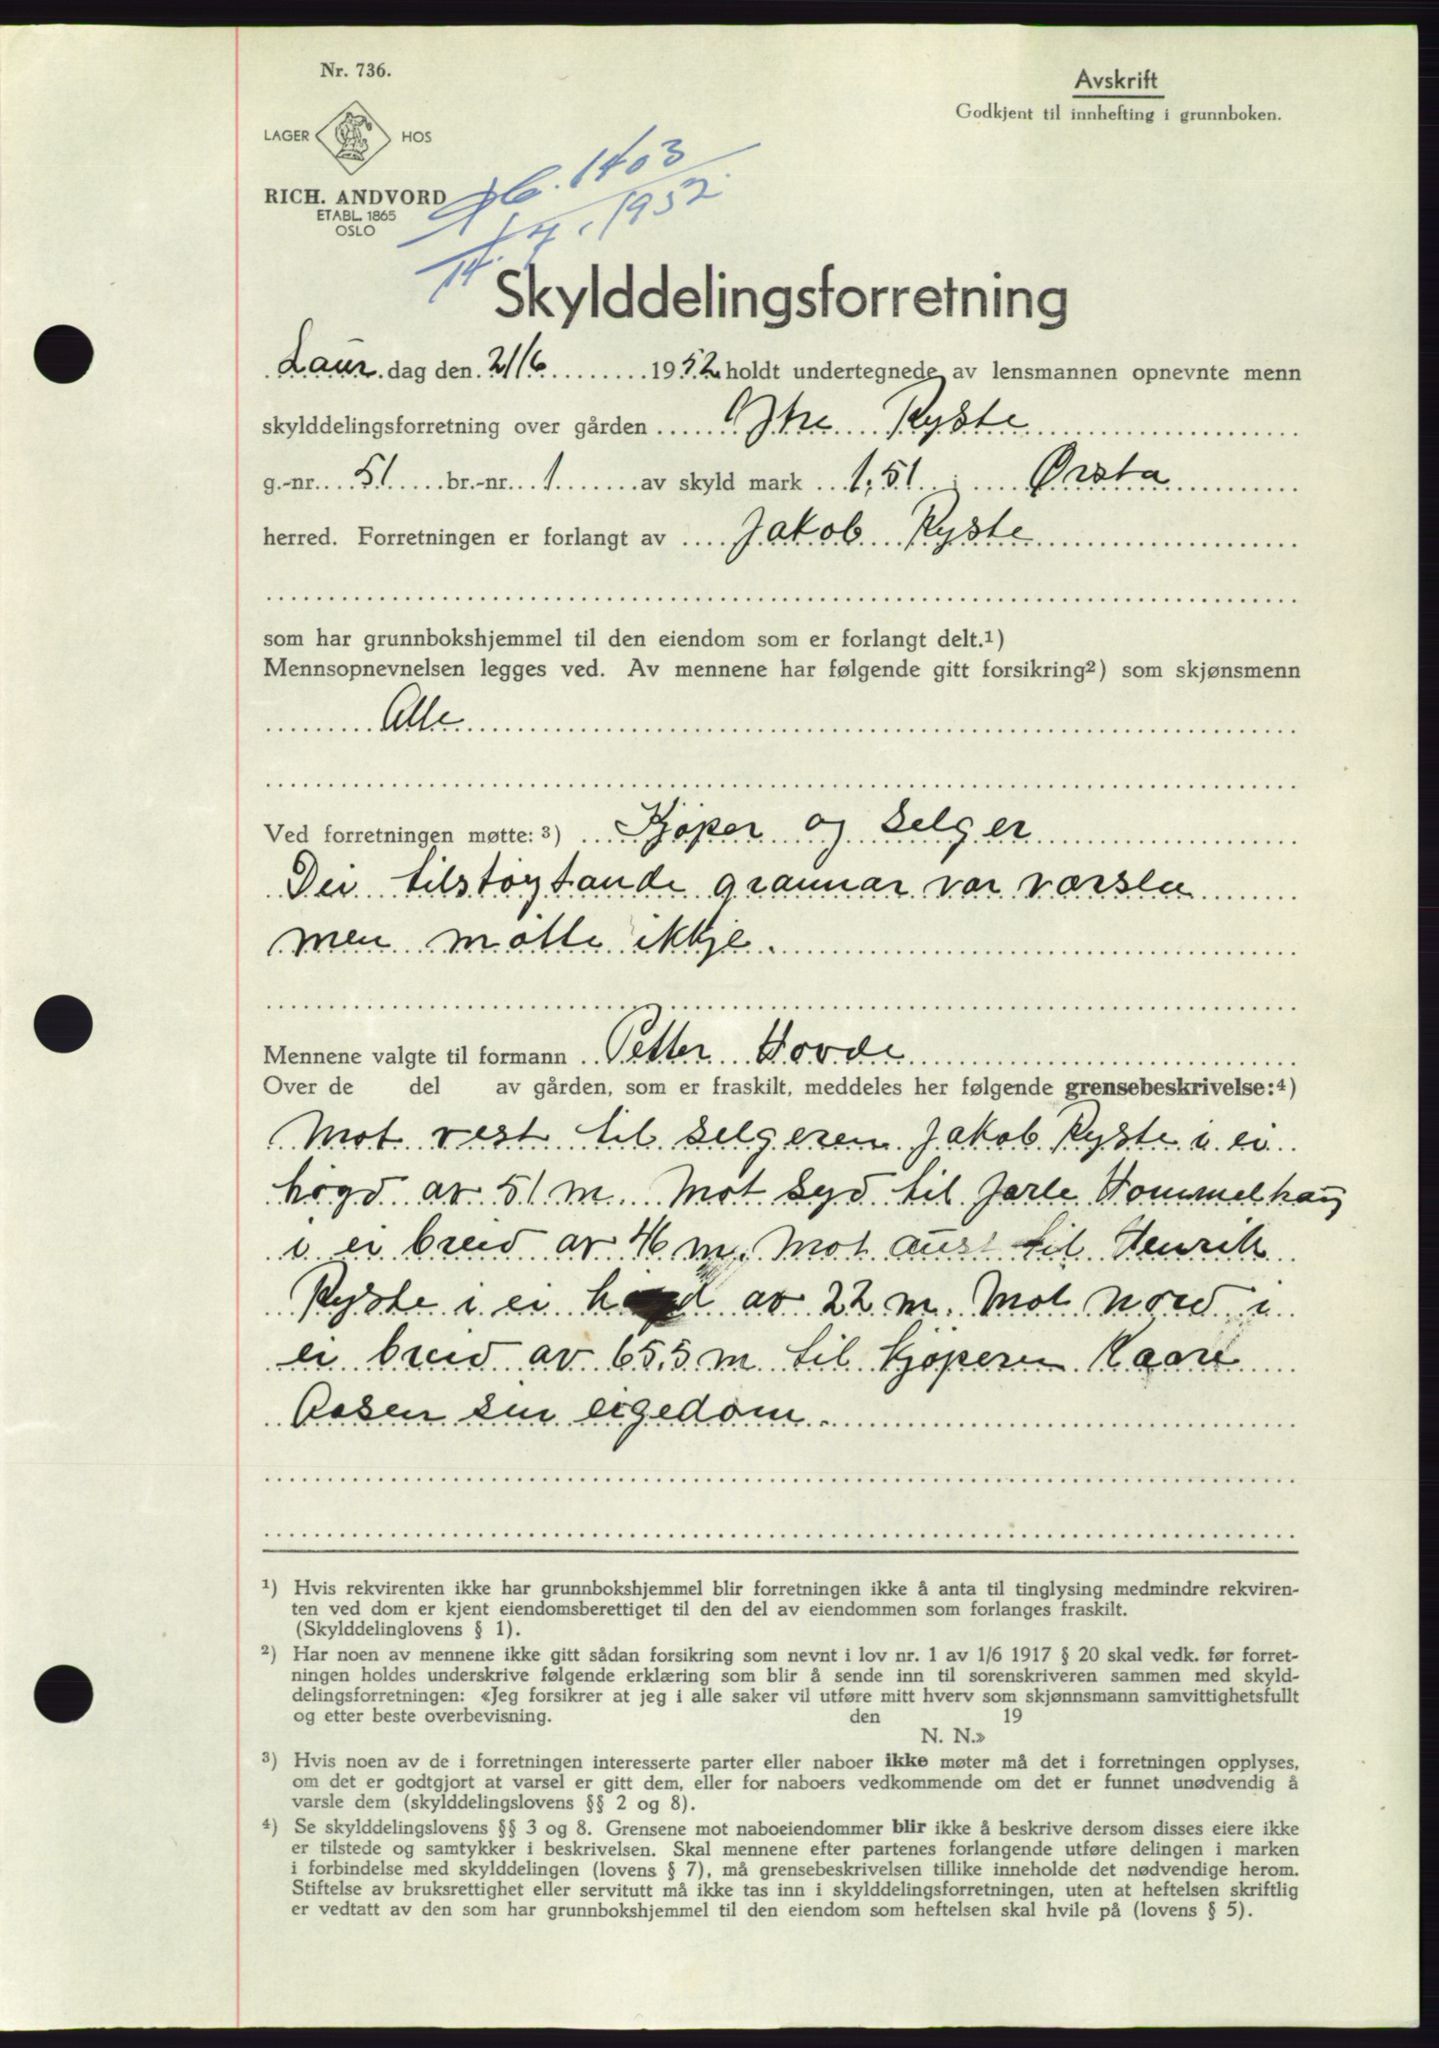 Nr. 736.
Avskrift
Godkjent til innhefting i grunnboken.
LAGER HOS
RICH. ANDVORD
ETABL. 1865
OSLO
Db. 1403
14/7. 1952.
Skylddelingsforretning
Laur. dag den 21/6 1952 holdt undertegnede av lensmannen opnevnte menn
skylddelingsforretning over gården Ytre Ryste
g.-nr. 51 br.-nr. 1 av skyld mark 1,51 i Ørsta
herred. Forretningen er forlangt av Jakob Ryste
som har grunnbokshjemmel til den eiendom som er forlangt delt.¹)
Mennsopnevnelsen legges ved. Av mennene har følgende gitt forsikring²) som skjønsmenn
Alle
Ved forretningen møtte: ³) Kjøper og selger
Dei tilstøytande grannar var varsla
men møtte ikkje.
Mennene valgte til formann Petter Hovde
Over de del av gården, som er fraskilt, meddeles her følgende grensebeskrivelse:⁴)
Mot vest til selgeren Jakob Ryste i ei
høgd av 51 m. Mot syd til Jarle Hommelhaug
i ei breid av 46 m. Mot aust til Henrik
Ryste i ei høgd av 22 m. Mot nord i
ei breid av 65,5 m til kjøperen Kaare
Aasen sin eigedom.
¹) Hvis rekvirenten ikke har grunnbokshjemmel blir forretningen ikke å anta til tinglysing medmindre rekviren-
ten ved dom er kjent eiendomsberettiget til den del av eiendommen som forlanges fraskilt.
(Skylddelinglovens § 1).
²) Har noen av mennene ikke gitt sådan forsikring som nevnt i lov nr. 1 av 1/6 1917 § 20 skal vedk. før forret-
ningen holdes underskrive følgende erklæring som blir å sende inn til sorenskriveren sammen med skyld-
delingsforretningen: «Jeg forsikrer at jeg i alle saker vil utføre mitt hverv som skjønnsmann samvittighetsfullt
og etter beste overbevisning. den 19
N. N.»
³) Hvis noen av de i forretningen interesserte parter eller naboer ikke møter må det i forretningen opplyses,
om det er godtgjort at varsel er gitt dem, eller for naboers vedkommende om det er funnet unødvendig å
varsle dem (skylddelingslovens §§ 2 og 8).
⁴) Se skylddelingslovens §§ 3 og 8. Grensene mot naboeiendommer blir ikke å beskrive dersom disses eiere ikke
er tilstede og samtykker i beskrivelsen. Skal mennene efter partenes forlangende utføre delingen i marken
i forbindelse med skylddelingen (lovens § 7), må grensebeskrivelsen tillike inneholde det nødvendige herom.
Stiftelse av bruksrettighet eller servitutt må ikke tas inn i skylddelingsforretningen, uten at heftelsen skriftlig
er vedtatt av den som har grunnbokshjemmel til den eiendom som heftelsen skal hvile på (lovens § 5).